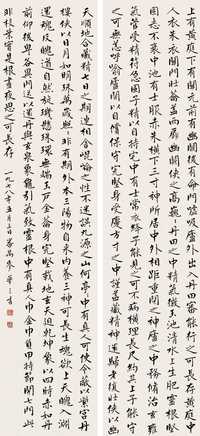 上有黄庭下有關元前有幽闕後有命門噓吸廬外出入丹田審能行之可長存黄庭中
人衣朱衣關門壯籥蓋兩扉幽闕俠之高巍巍丹田之中精氣微玉池清水上生肥靈根堅
志不衰中池有士服赤朱橫下三寸神所居中外相距重閉之神廬之中務脩治玄膺
氣管受精符急固子精以自持宅中有士常衣絳子能見之可不病橫理長尺約其上子能守
之可無恙呼噏廬間以自償保守完堅身受慶方寸之中謹蓋藏精神還歸老復壯俠以幽
天順地合藏精七日之期連相合崐崘之性不迷誤九源之山何亭亭中有真人可使令蔽以紫宮丹
樓俠以日月如明珠萬歲昭昭非有期外本三陽物自來內養三神可長生魂欲上天魄入淵
還魂反魄道自然旋璣懸珠環無端玉石戶金籥身完堅載地玄天迴乾坤象以四時赤如丹
前仰後卑各異門送以還丹與玄泉象龜引氣致靈根中有真人巾金巾負甲持符開七門此
非枝葉實是根晝夜思之可長存
一九七八年五月三日